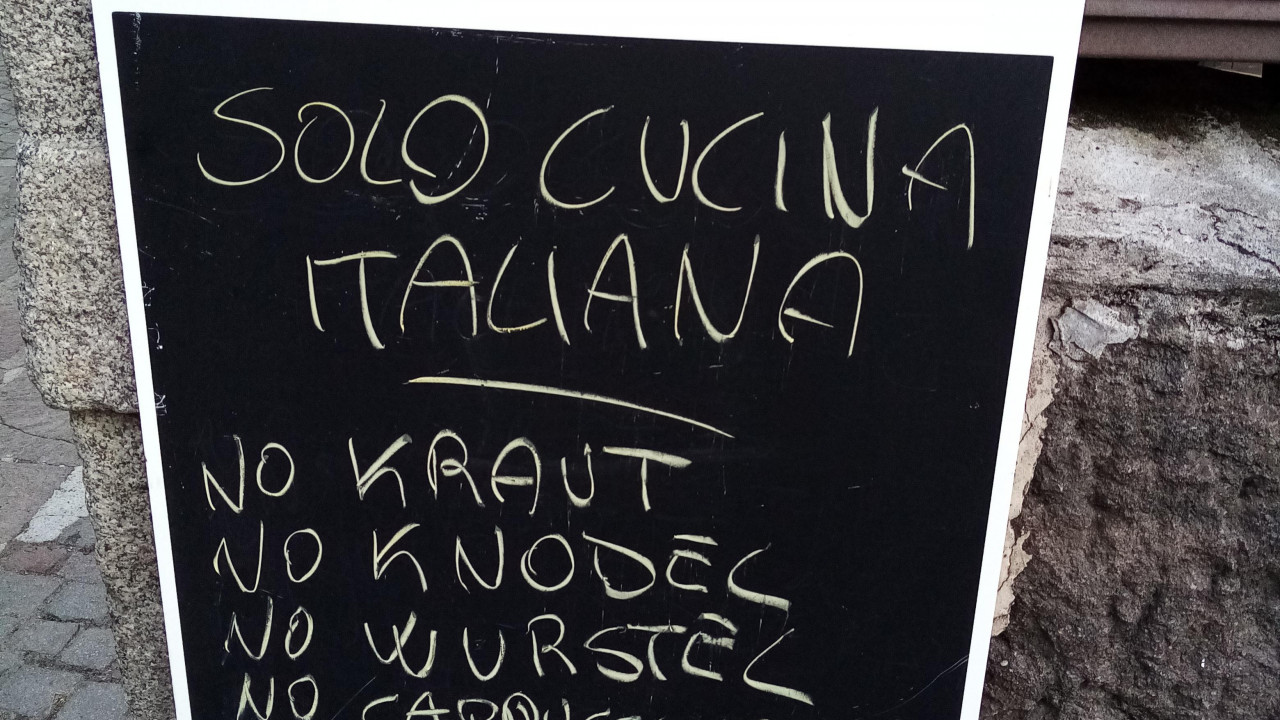 SOLO CUCINA
ITALIANA
NO KRAUT
NO KNODEL
NO WURSTEL
NO